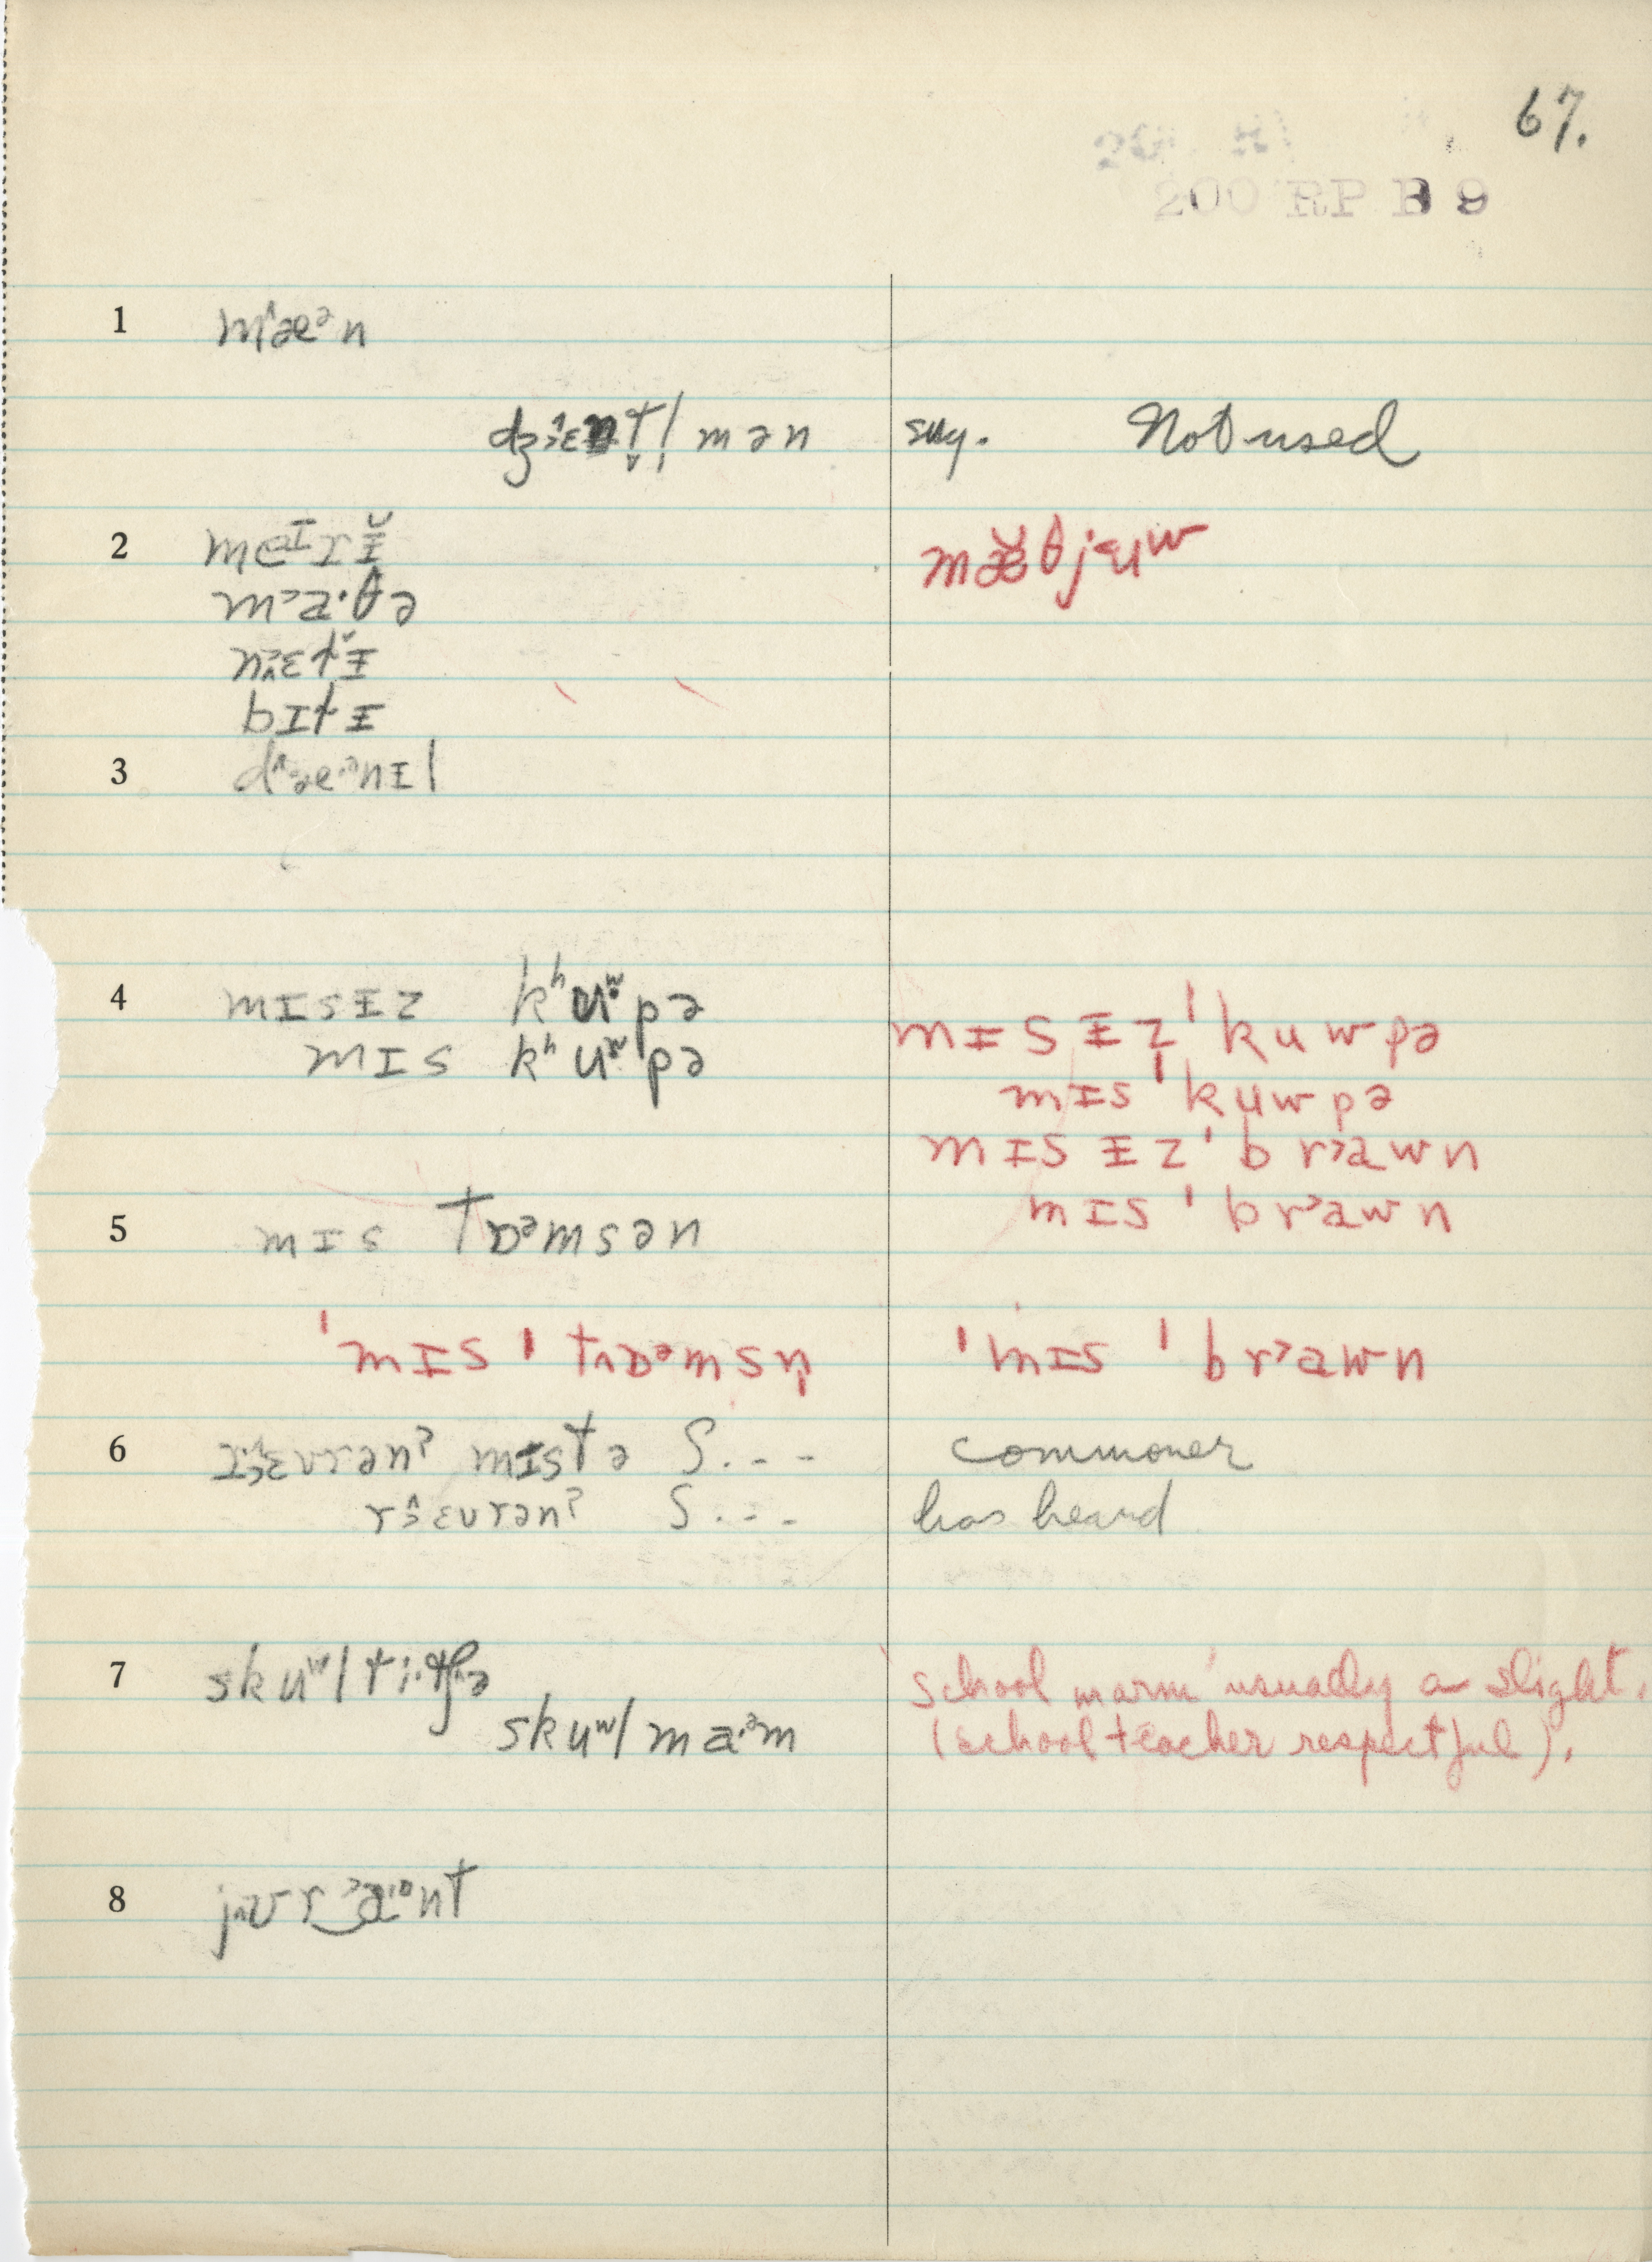 67.
200 RP B 9
1 m^æᵊn
dʒɛnt̬l̩mən sug. Not used
2 meɪrɪ̵̆ mæθjʉʷ
m˃a·θə
nɛtɪ̵̆
bɪtɪ̵
3 d^æ·ᵊnɪ̵l
4 mɪsɪ̵z kʰʉʷpə mɪsɪ̵z̩ ˈkuwpə
mɪs kʰʉʷpə mɪs ˈkʉwpə
mɪsɪ̵z ˈbr˃awn
5 mɪs tɒᵊmsən mɪs ˈbr˃awn
ˈmɪs ˈtɒᵊmsn̩ ˈmɪs ˈbr˃awn
6 rɛvrənˀ mɪstə S... commoner
rɛvrənˀ S... has heard
7 skuʷl ti·tʃə 'school marm' usually a slight.
skuʷl ma·ᵊm (school teacher respectful).
8 jʊr‿˃a·ᵊnt